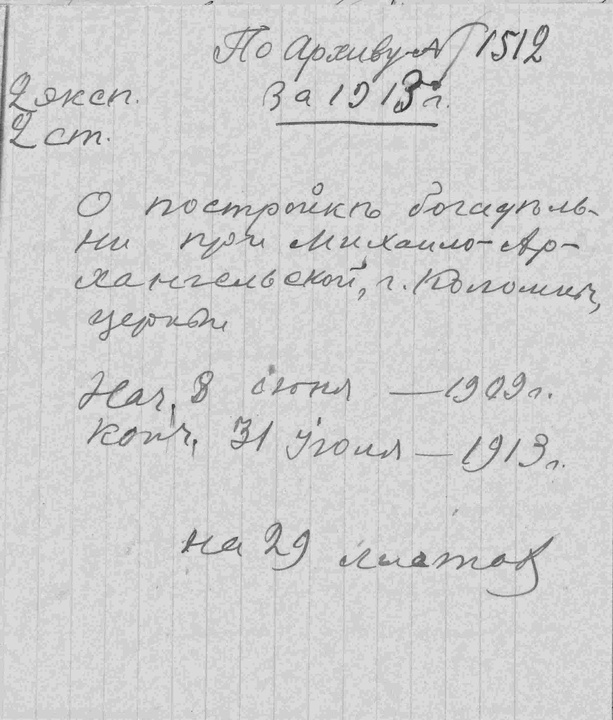 По Архиву № 1512
За 1913 г.
2 эксп.
2 ст.
О постройкѣ богадѣль-
ни при Михаило-Ар-
хангельской, г. Коломны,
церкви
Нач. 8 июня — 1909 г.
Конч. 31 Июля — 1913 г.
на 29 листов